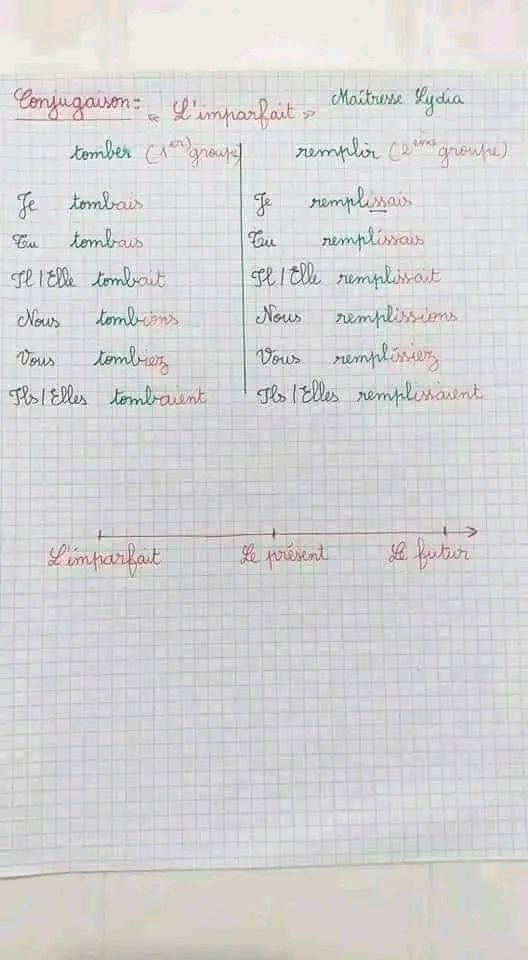 Conjugaison: « L'imparfait » Maîtresse Lydia
tomber (1er) groupe remplir (2ème groupe)
Je tombais Je remplissais
Tu tombais Tu remplissais
Il/Elle tombait Il/Elle remplissait
Nous tombions Nous remplissions
Vous tombiez Vous remplissiez
Ils/Elles tombaient Ils/Elles remplissaient
L'imparfait Le présent Le futur